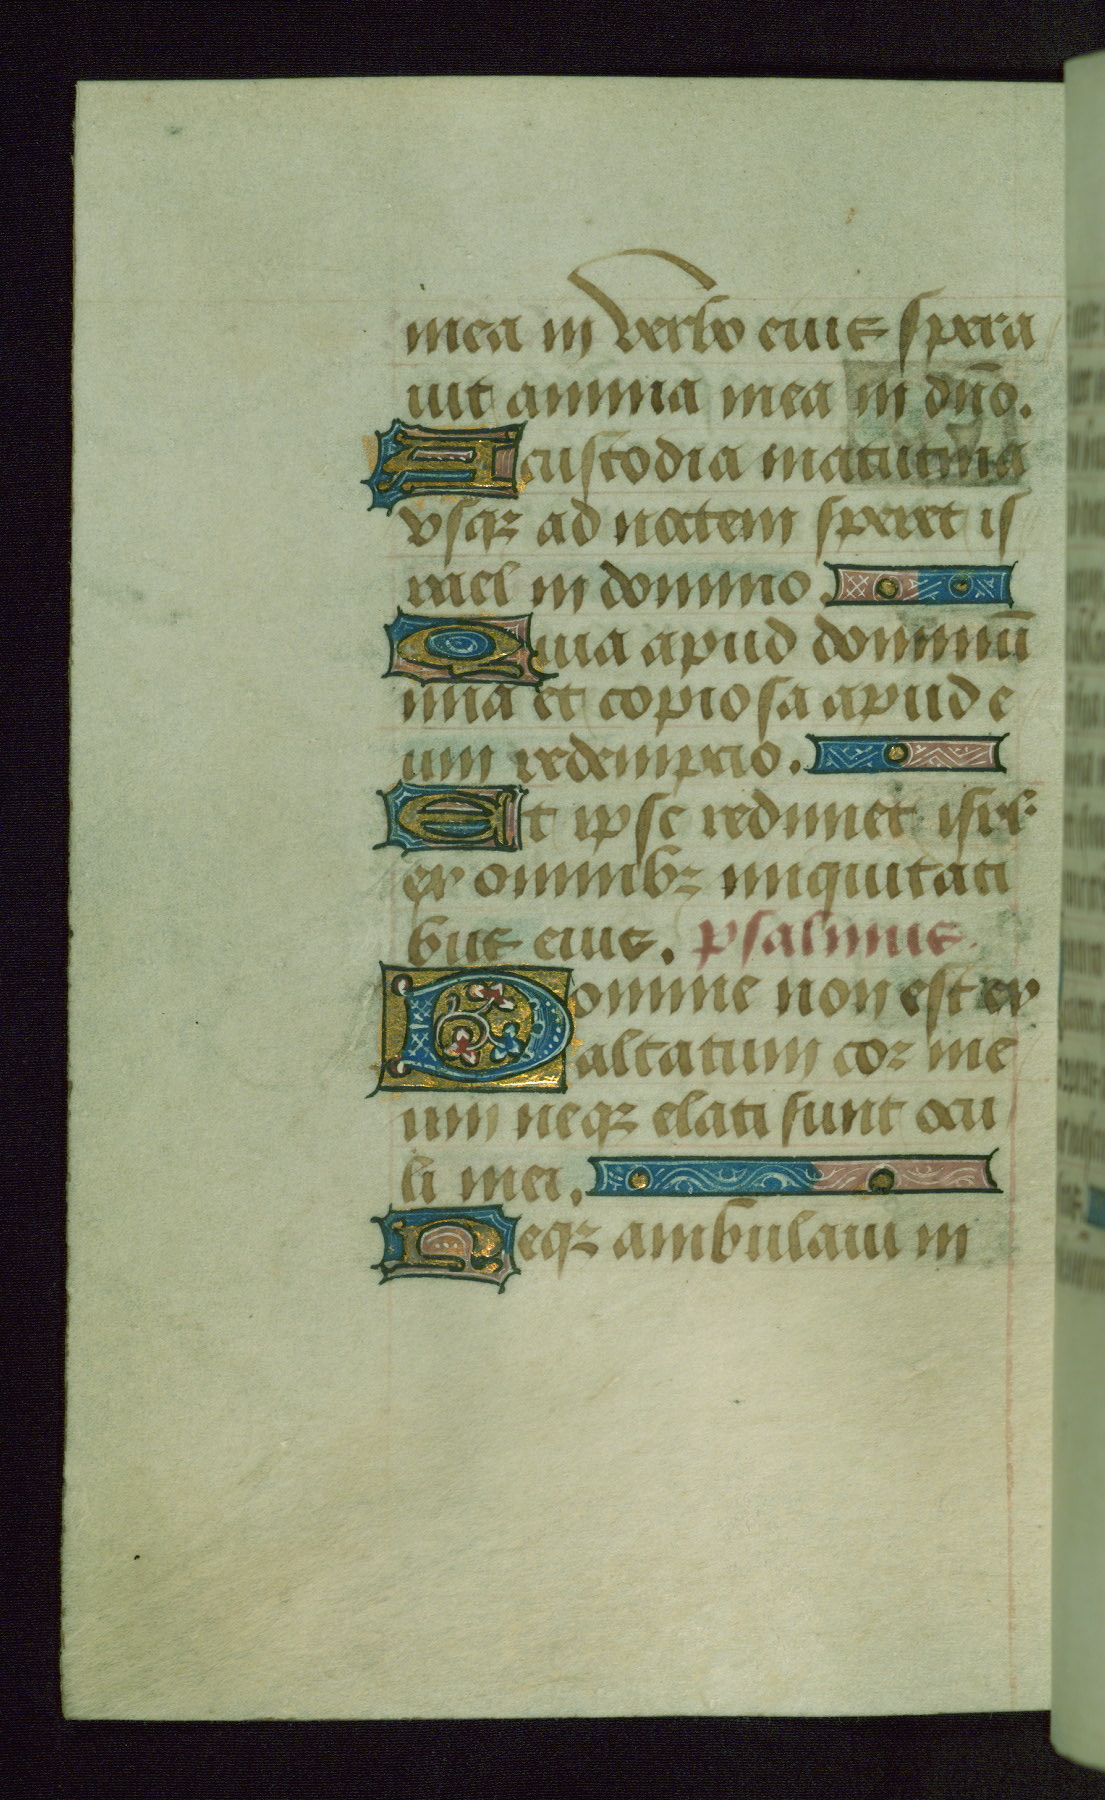 mea in verbo eius spera
uit anima mea in dño.
A custodia matutina
vsqꝫ ad noctem speret is
rael in domino.
Quia apud dominū
mīa et copiosa apud e
um redemptio.
Et ipse redimet isrl'
ex omnibꝫ iniquitati
bus eius. psalmus.
Domine non est ex
altatum cor me
um neqꝫ elati sunt ocu
li mei.
Neqꝫ ambulaui in